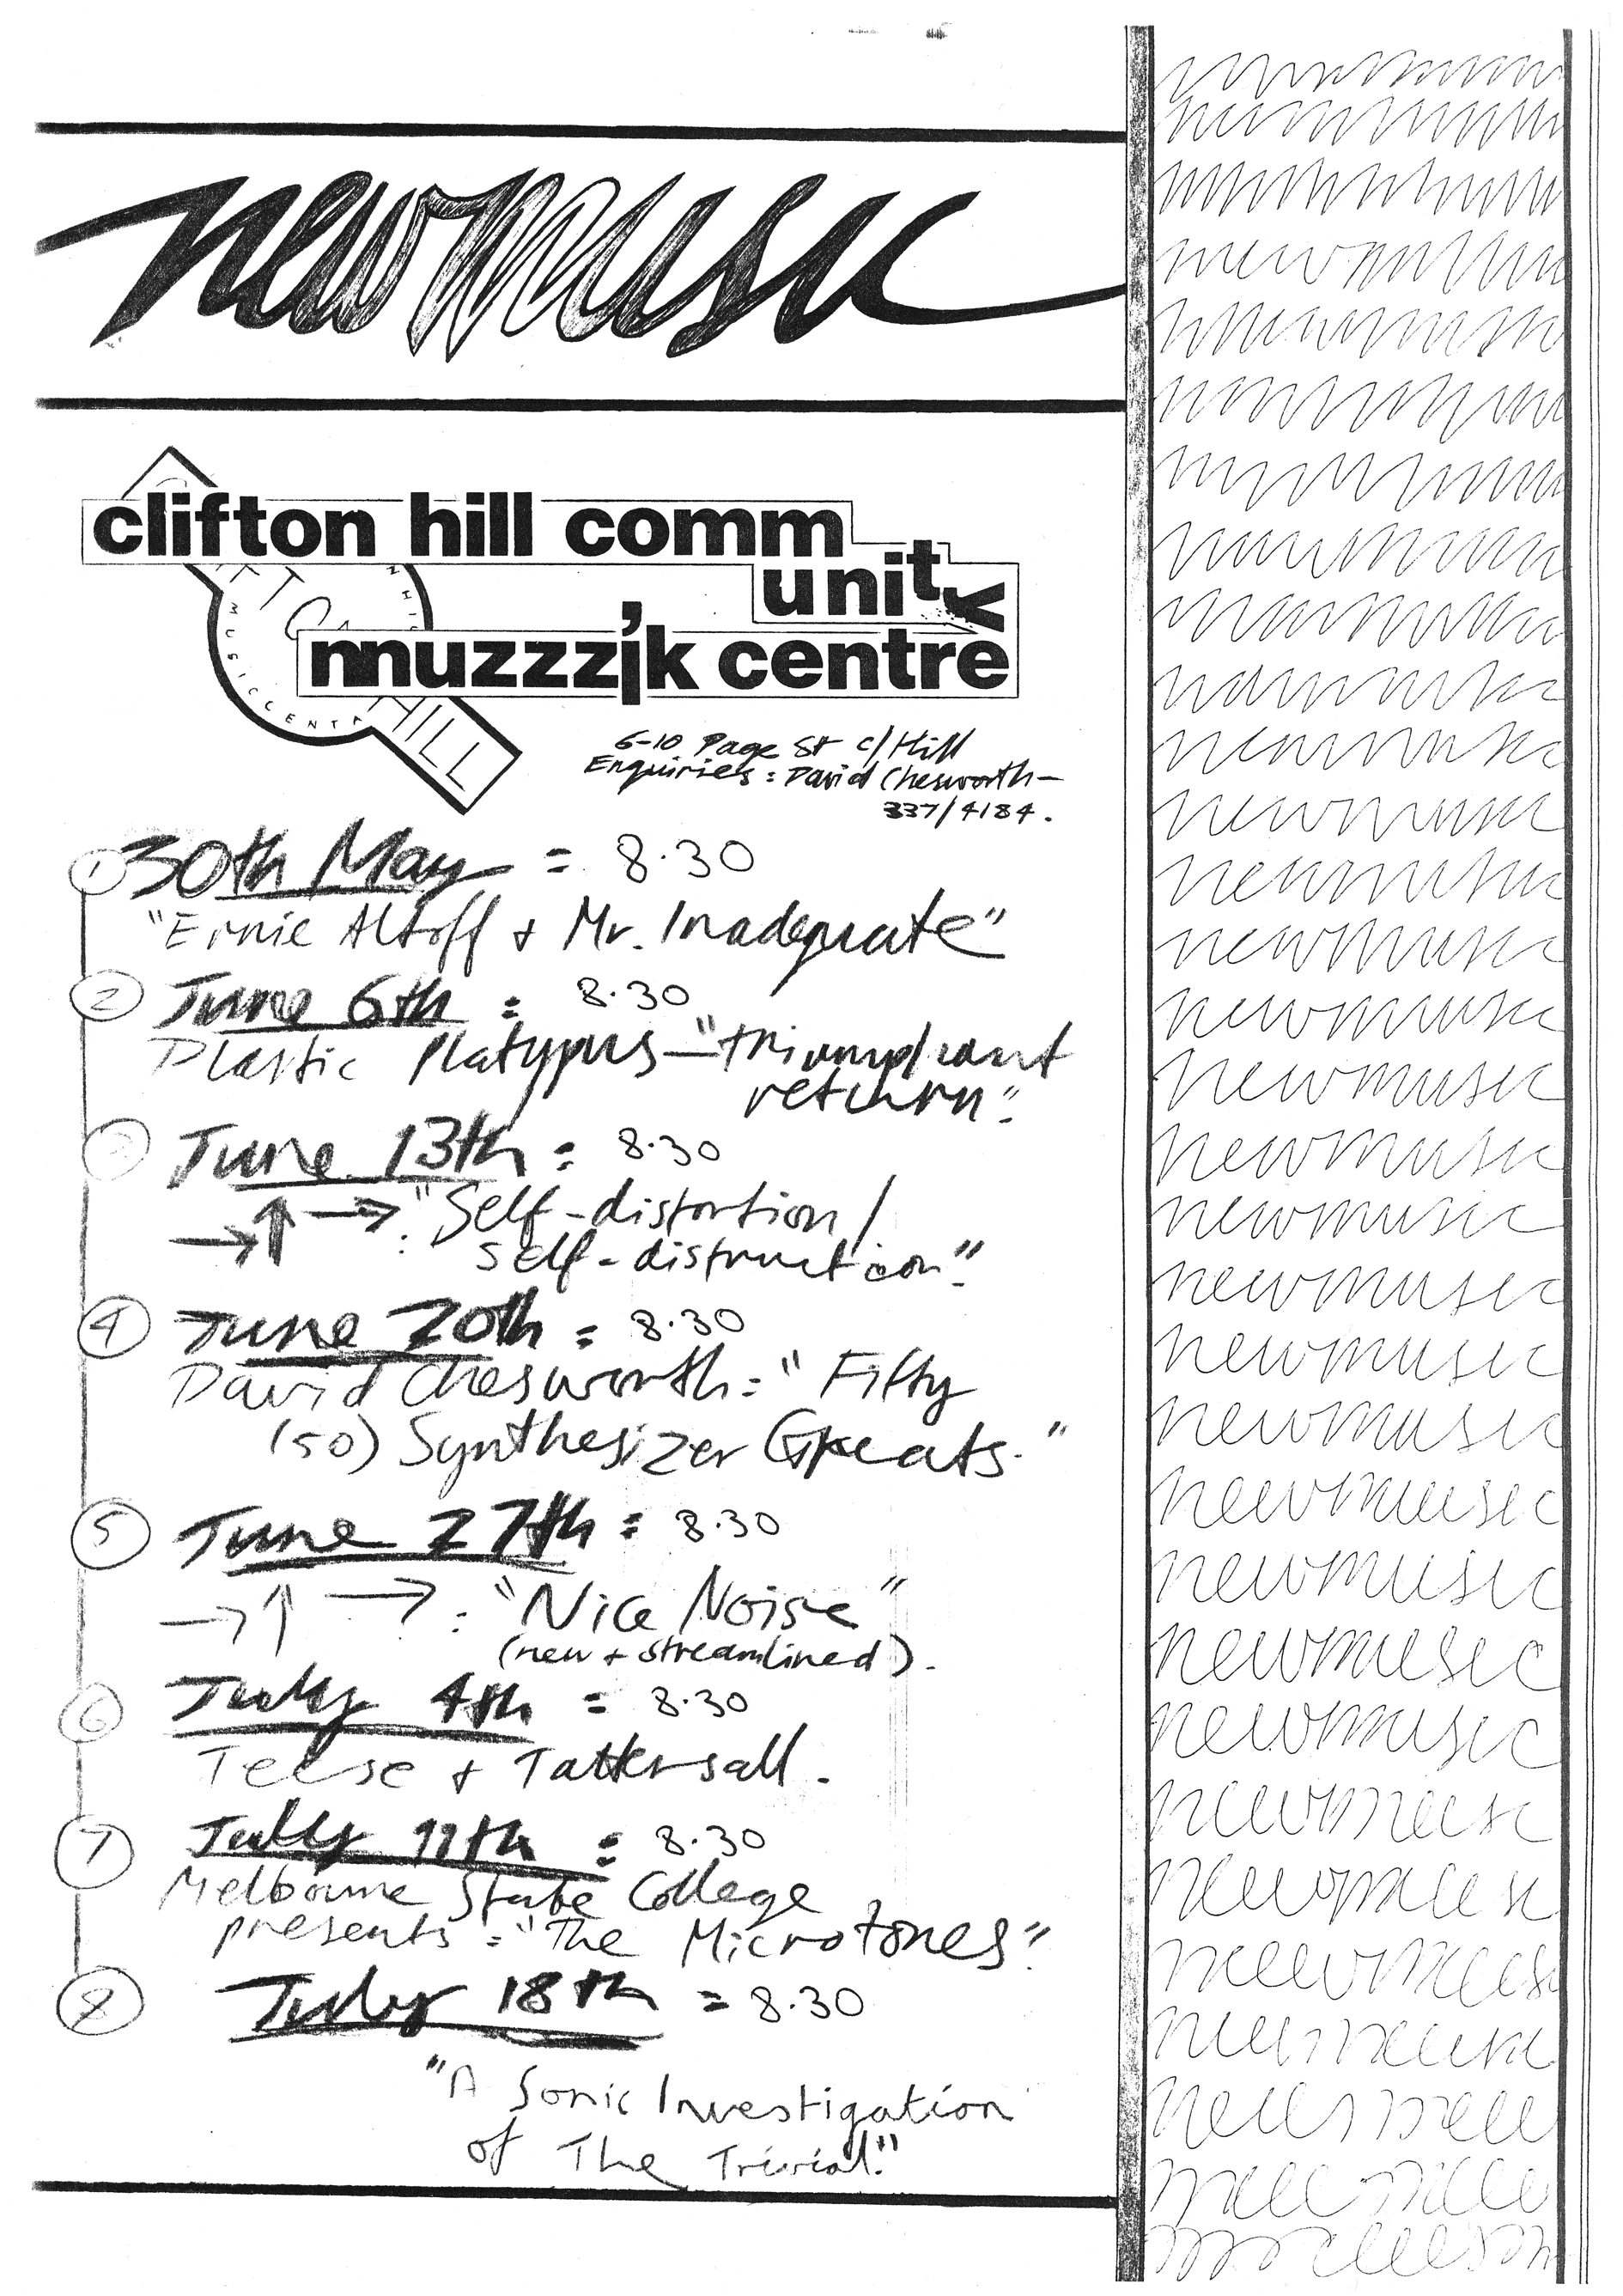 newmusic
clifton hill comm
unity
muzzzik centre
CLIFTON HILL
MUSIC CENTR
6-10 Page St c/Hill
Enquiries : David Chesworth—
337/4184.
1 30th May = 8.30
"Ernie Althoff + Mr. Inadequate"
2 June 6th : 8.30
Plastic Platypus — "triumphant
return".
3 June 13th : 8.30
→↑→ : "Self-distortion/
self-distruction".
4 June 20th : 8.30
David Chesworth : "Fifty
(50) Synthesizer Greats."
5 June 27th : 8.30
→↑→ : "Nice Noise"
(new + streamlined).
6 July 4th = 8.30
Teese + Tattersall.
7 July 11th : 8.30
Melbourne State College
presents : "The Microtones".
8 July 18th = 8.30
"A Sonic Investigation
of The Trivial."
newmusic
newmusic
newmusic
newmusic
newmusic
newmusic
newmusic
newmusic
newmusic
newmusic
newmusic
newmusic
newmusic
newmusic